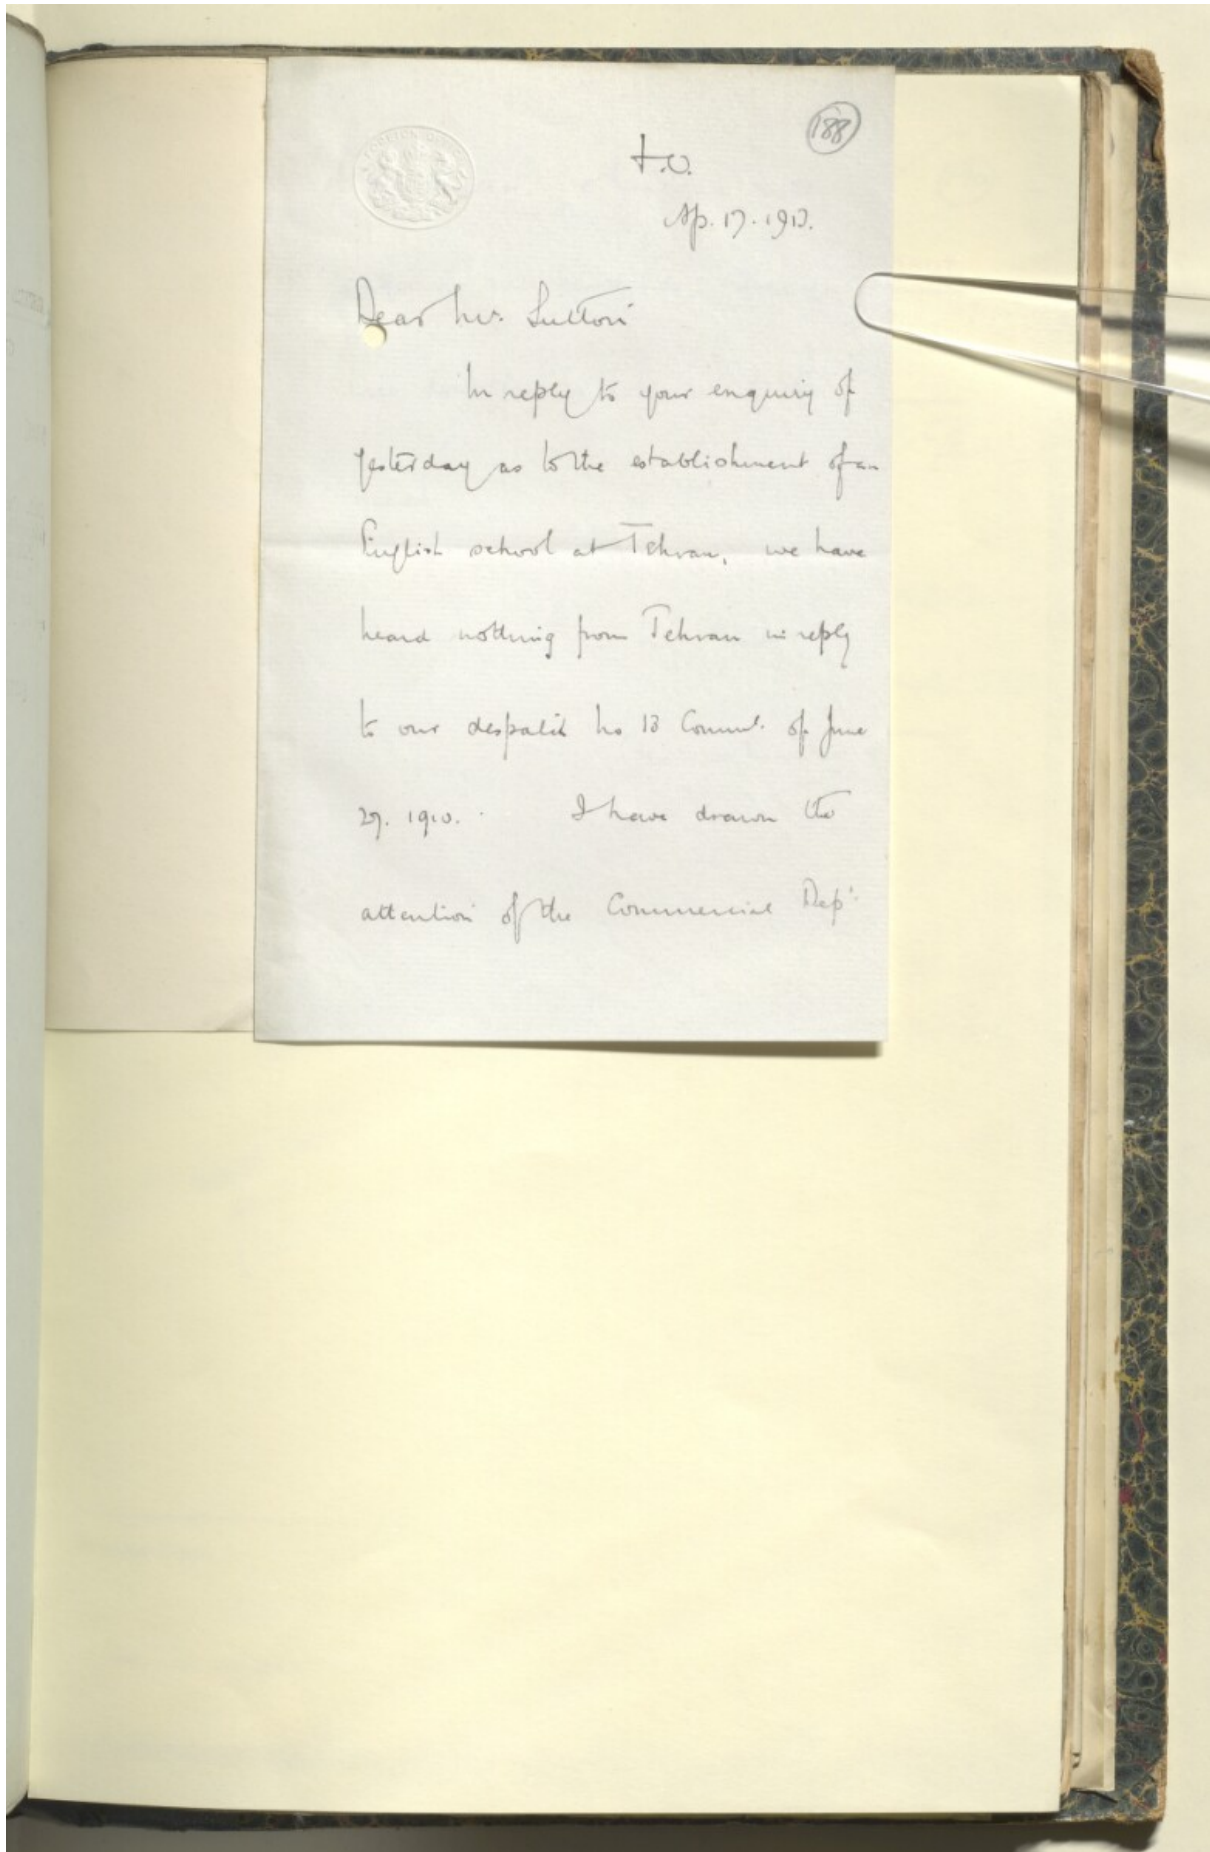 188
F.O.
Ap. 17. 1913.
FOREIGN OFFICE
Dear Mr. Sutton
In reply to your enquiry of
yesterday as to the establishment of an
English school at Tehran, we have
heard nothing from Tehran in reply
to our despatch No 13 Comml. of June
29. 1910. I have drawn the
attention of the Commercial Dept.